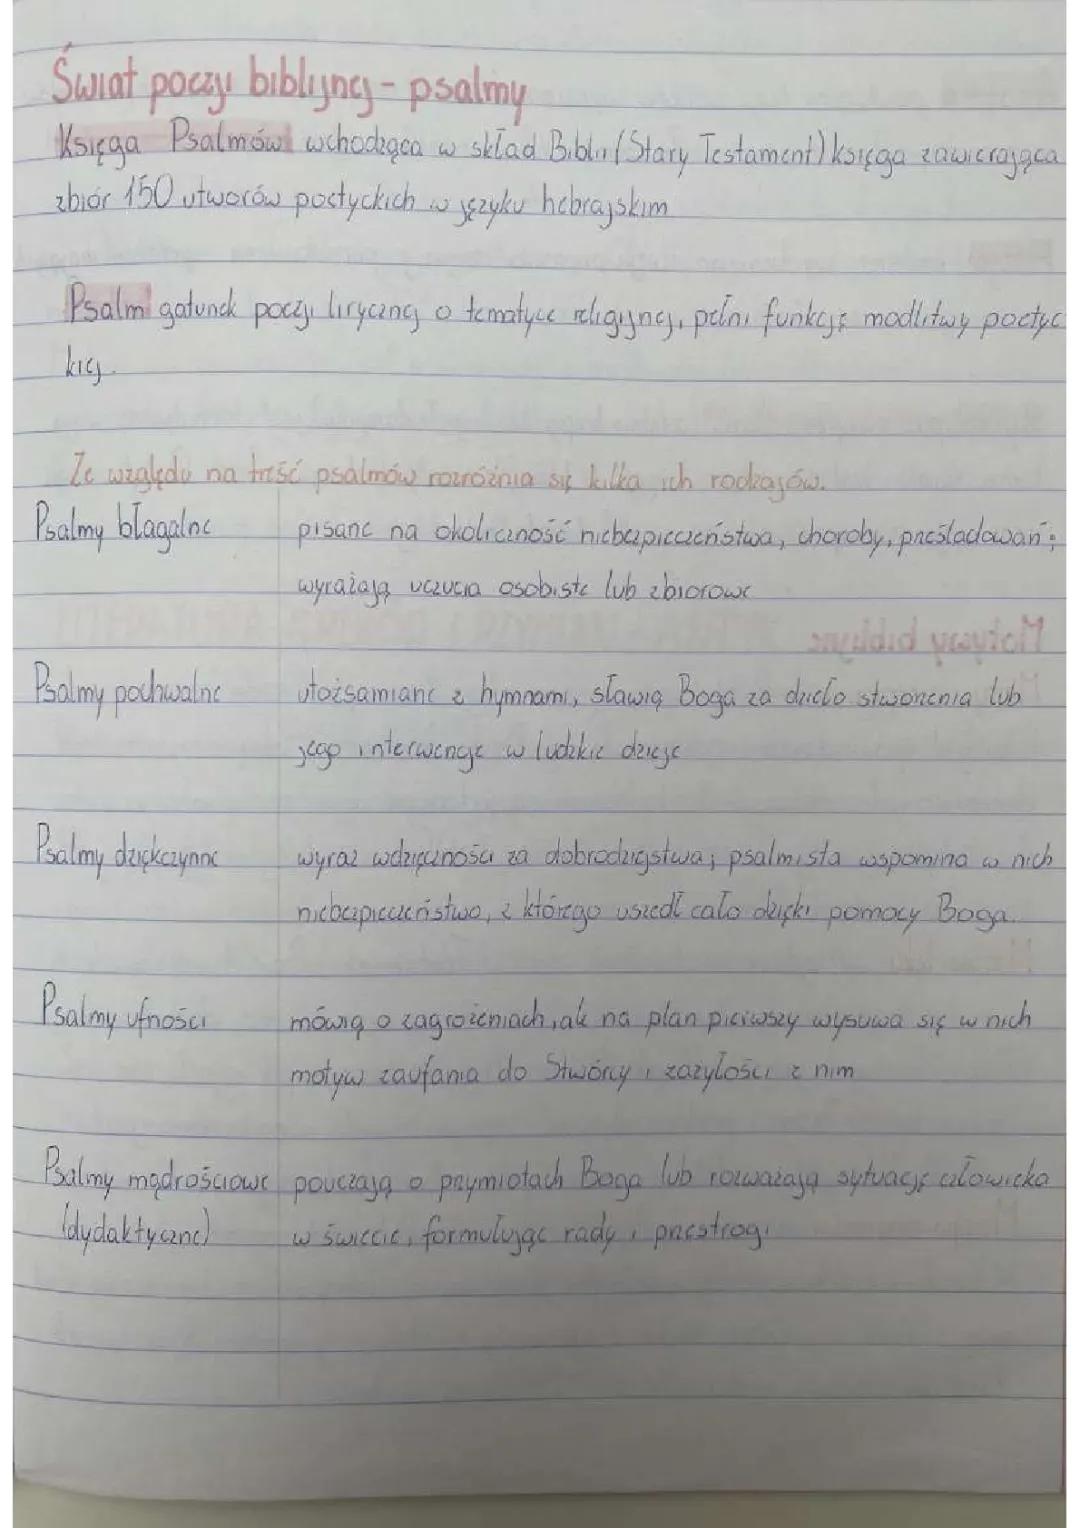 Świat poezji biblijnej - psalmy
Księga Psalmów wchodząca w skład Biblii (Stary Testament) księga zawierająca
zbiór 150 utworów poetyckich w języku hebrajskim
Psalm gatunek poezji lirycznej o tematyce religijnej, pełni funkcję modlitwy poetyc
kiej.
Ze względu na treść psalmów rozróżnia się kilka ich rodzajów.
Psalmy błagalne pisane na okoliczność niebezpieczeństwa, choroby, prześladowań;
wyrażają uczucia osobiste lub zbiorowe
Motywy biblijne
Psalmy pochwalne utożsamiane z hymnami, sławią Boga za dzieło stworzenia lub
jego interwencje w ludzkie dzieje
Psalmy dziękczynne wyraz wdzięczności za dobrodziejstwa; psalmista wspomina w nich
niebezpieczeństwo, z którego uszedł cało dzięki pomocy Boga.
Psalmy ufności mówią o zagrożeniach, ale na plan pierwszy wysuwa się w nich
motyw zaufania do Stwórcy i zażyłości z nim
Psalmy mądrościowe pouczają o przymiotach Boga lub rozważają sytuację człowieka
(dydaktyczne) w świecie, formułując rady i przestrogi